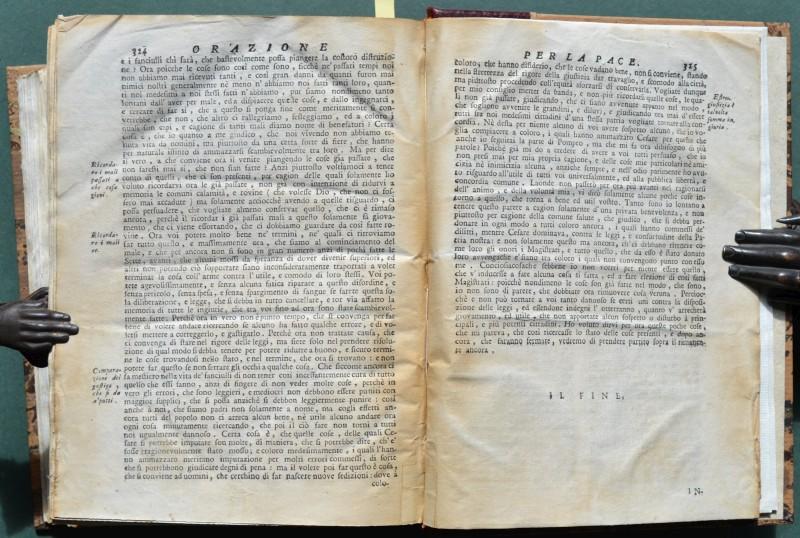 324 ORAZIONE
e i fanciulli chi farà, che bastevolmente possa piangere la costoro distruzio-
ne? Ora poiche le cose sono così come sono, ficchè ne' passati tempi noi
non abbiamo mai ricevuti tanti, e così gran danni da quanti furon mai
nimici nostri generalmente nè meno n' abbiamo noi fatti tanti loro, quan-
ti noi medesimi a noi stessi fatti n'abbiamo, pur siamo da dolerci tanto
lontani dall' aver per male,
e tercare di far sì, che a questo si ponga fine come meritamente si con-
verrebbe, che non, che altro ci rallegriamo, festeggiamo, ed a coloro i
quali son capi, e cagione di tanti mali diamo nome di benefattori? Certa
cosa è, che in quanto a me giudico, che noi vivendo non abbiamo te-
nuta vita da uomini, ma piuttosto da una certa sorte di fiere, che hanno
per naturale istinto di ammazzarsi scambievolmente tra loro. Ma per dire
il vero, a che conviene ora il venire piangendo le cose già passate, che
non farchi mai sì, che non sian fatte? Anzi piuttosto vogliamoci a tener
conto di quelle, che ci son presenti, per cagion delle quali solamente ho
voluto ricordarvi ora le già passate, non già con intenzione di ridurvi a
memoria le comuni calamità, e rovine (che volesse Dio, che non ci fos-
sero mai accadute) ma solamente acciocchè avendo a quelle risguardo, ci
possa persuadere, che vogliate almeno conservar quello, che ci è rimaso
ancora, perchè il ricordar i già passati mali a questo solamente si giova-
mento, che ci viene esortando, che ci dobbiamo guardare da così fatte ro-
vine. Ora voi potete molto bene ne' termini, ne' quali ci ritroviamo
far tutto quello, e massimamente ora, che siamo al cominciamento del
male, e che per ancora non si sono in gran numero anzi di pochi fatte le
Sette, avanti, che alcuna mossi da speranza di dover divenir superiori, ed
altri non potendo ciò sopportare siano inconsideratamente trapportati a voler
terminar la cosa coll' arme contra l'utile, e comodo di loro stessi. Voi po-
tete agevolissimamente, e senza alcuna fatica riparare a questo disordine, e
senza pericolo, senza spesa, e senza spargimento di sangue se farete questa so-
la diliberazione, e legge, che si debba in tutto cancellare, e tor via affatto la
memoria di tutte le ingiurie, che tra voi fino ad ora sono state scambievol-
mente fatte. Perchè ora in vero non è punto tempo, che si convenga per far
bene di volere andare ricercando se alcuno ha fatto qualche errore, e di vo-
lersi mettere a correggerlo, e gastigarlo. Perchè ora non trattate causa, che
ci convenga di stare nel rigore delle leggi, ma siete solo nel prendere riso-
luzione di qual modo si debba tenere per potere ridurre a buono, e sicuro termi-
ne le cose trovandosi nello stato, e nel termine, che ora si trovano: e non
potete far questo se non serrate gli occhi a qualche cosa. Che siccome ancora ci
fa mestiero nella vita de' fanciulli di non tener così incessantemente cura di tutto
quello che essi fanno, anzi di fingere di non veder molte cose, perchè in
vero gli errori, che sono leggieri, e mediocri non debbono essere puniti con
maggior supplicj, che si possa anzichè si debbon leggiermente punire: così
anche a noi, che siamo padri non solamente a nome, ma cogli effetti an-
cora tutti del popolo non ci arreca alcun bene, nè utile alcuno andare ora
ogni cosa minutamente ricercando, che poi il ciò fare non torni a tutti
noi ugualmente dannoso. Certa cosa è, che quelle cose, delle quali Ce-
sare si potrebbe imputare son molte, di maniera, che si potrebbe dire, ch' e'
fosse ragionevolmente stato mosso; e coloro medesimamente, i quali l'han-
no ammazzato meritano imputazione per molti errori commessi, di sorte
che si potrebbono giudicare degni di pena: ma il volere poi far questo è cosa,
che si conviene ad uomini, che cerchino di far nascere nuove sedizioni: dove a
colo-
Ricordar i mali passati a che cosa giovi.
Ricordar i mali
Comparazione del gastigo, che si dà a' putti.
PER LA PACE. 325
coloro, che hanno disidero, che le cose vadano bene, non si conviene, stando
nella strettezza del rigore della giustizia dar travaglio, e scomodo alla città,
ma piuttosto procedendo coll'equità sforzarsi di conservarla. Vogliate dunque
per mio consiglio metter da banda, e non più ricordarvi quelle cose, le qua-
li non già passate, giudicando, che ci siano avvenute appunto nel modo,
che sogliono avvenire le grandini, e diluvi, e giudicando ora mai d'esser
tutti tra noi medesimi cittadini d'una stessa patria vogliate tornare alla con-
cordia. Nè dessa per niente alcuno di voi avere sospetto alcuno, che io vo-
glia compiacere a coloro, i quali hanno ammazzato Cesare per quello che
anche io seguissi la parte di Pompeo, ma che mi fa ora disfodogo di più
parole: Poichè già mi do a credere di avere a voi tutti persuaso, che io
non presi mai per mia propria cagione, e delle cose mie particolari nè ami-
cizia nè inimicizia alcuna, anzichè sempre, e nell'odio parimente ho avu-
to risguardo all'utile di tutti voi universalmente, ed alla publica libertà, e
concordia comune. Laonde non passerò per ora più avanti nel ragionarvi
dell'animo, e della volontà mia, vi dirò solamente alcune poche cose in-
torno a quello, che torna a bene ed util vostro. Tanto sono io lontano a
tenere questo parere a cagion solamente d'una privata benevolenza, e non
piuttosto per cagione della comune salute, che giudico, che si debba per-
donare in ogni modo a tutti coloro ancora, i quali hanno commessi de'
difetti, mentre Cesare dominava, contra le leggi, e consuetudini della Pa-
tria nostra: e non solamente questo ma ancora, ch' ei debbano ritenere co-
me loro gli onori i Magistrati, e tutto quello, che da esso è stato donato
loro avvengachè e' siano tra coloro i quali non convengono punto con es-
so me. Conciossiacosache sebbene io non vorrei per niente esser quello,
che v'inducesse a far alcuna cosa sì fatta, ed a far elezione di così fatti
Magistrati: poichè nondimeno le cose son già state nel modo, che sono,
io non sono di parere, che dobbiate ora rimuovere cosa veruna. Percioc-
chè e non può tornare a voi tanto dannoso se terrà un contra la disposi-
zione delle leggi, ed essendone indegni l' otterranno, quanto v' arrecherà
giovamento, ed utile, che non apportate alcun sospetto o disturbo à prin-
cipali, e più potenti cittadini. Ho voluto dirvi per ora queste poche cose,
che mi pareva, che così ricercasse lo stato delle cose presenti, e dopo an-
cora, che saranno fermate, vedremo di prendere partito sopra il rimanen-
te ancora.
IL FINE.
IN-
Estrema giustizia è talvolta somma ingiuria.